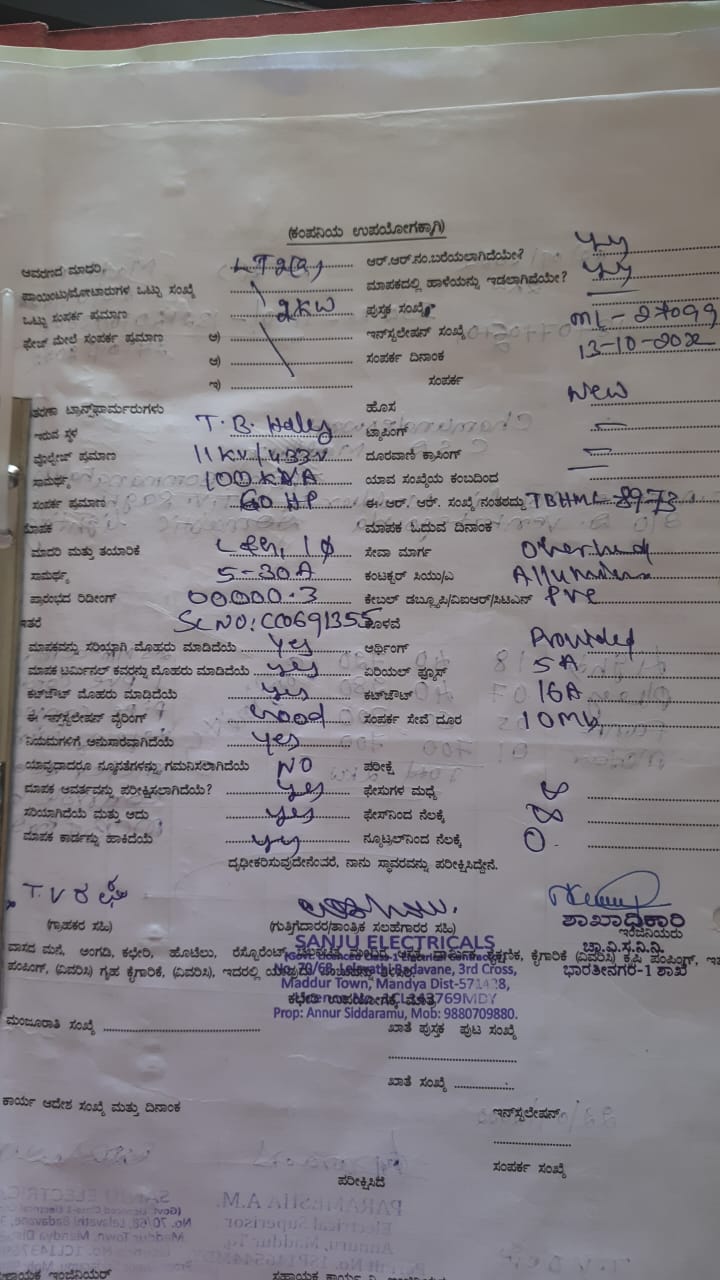 (ಕಂಪನಿಯ ಉಪಯೋಗಕ್ಕಾಗಿ)
ಆವರಣದ ಮಾದರಿ, LT2(a) ಆರ್.ಆರ್.ನಂ.ಬರೆಯಲಾಗಿದೆಯೇ?
ಪಾಯಿಂಟು/ಮೋಟಾರುಗಳ ಒಟ್ಟು ಸಂಖ್ಯೆ ಮಾಪಕದಲ್ಲಿ ಹಾಳೆಯನ್ನು ಇಡಲಾಗಿದೆಯೇ?
ಒಟ್ಟು ಸಂಪರ್ಕ ಪ್ರಮಾಣ 2KW ಪುಸ್ತಕ ಸಂಖ್ಯೆ
ಫೇಜ್ ಮೇಲೆ ಸಂಪರ್ಕ ಪ್ರಮಾಣ ಅ) ಇನ್ಸ್‌ಲೇಷನ್ ಸಂಖ್ಯೆ ML-27099
ಆ) ಸಂಪರ್ಕ ದಿನಾಂಕ 13-10-2022
ಇ) ಸಂಪರ್ಕ
ಟ್ರಾನ್ಸ್‌ಫಾರ್ಮರುಗಳು ಹೊಸ New
ಇರುವ ಸ್ಥಳ T.B. Halli ಟ್ಯಾಪಿಂಗ್ –
ವೋಲ್ಟೇಜ್ ಪ್ರಮಾಣ 11KV/433V ದೂರವಾಣಿ ಕ್ರಾಸಿಂಗ್ –
ಸಾಮರ್ಥ್ಯ 100KVA ಯಾವ ಸಂಖ್ಯೆಯ ಕಂಬದಿಂದ –
ಸಂಪರ್ಕ ಪ್ರಮಾಣ 60 HP ಈ ಆರ್. ಆರ್. ಸಂಖ್ಯೆ ನಂತರದ್ದು TBHML-8973
ಮಾಪಕ ಮಾಪಕ ಓದುವ ದಿನಾಂಕ
ಮಾದರಿ ಮತ್ತು ತಯಾರಿಕೆ 1Ø ಸೇವಾ ಮಾರ್ಗ Overhead
ಸಾಮರ್ಥ್ಯ 5-30A ಕಂಟಕ್ಟರ್ ಸಿಯು/ಎ
ಪ್ರಾರಂಭದ ರಿಡಿಂಗ್ 00000.3 ಕೇಬಲ್ ಡಬ್ಲ್ಯೂಪಿ/ವಿಐಆರ್/ಸಿಟಿಎಸ್ PVC
ಇತರೆ SL NO: CC0691355 ಕೊಳವೆ
ಮಾಪಕವನ್ನು ಸರಿಯಾಗಿ ಮೊಹರು ಮಾಡಿದೆಯೆ yes ಅರ್ಥಿಂಗ್ Provided
ಮಾಪಕ ಟರ್ಮಿನಲ್ ಕವರನ್ನು ಮೊಹರು ಮಾಡಿದೆಯೆ yes ಏರಿಯಲ್ ಫ್ಯೂಸ್ 5A
ಕಟ್‌ಔಟ್ ಮೊಹರು ಮಾಡಿದೆಯೆ yes ಕಟ್‌ಔಟ್ 16A
ಈ ಇನ್‌ಸ್ಟಲೇಷನ್ ವೈರಿಂಗ್ Good ಸಂಪರ್ಕ ಸೇವೆ ದೂರ
ನಿಯಮಗಳಿಗೆ ಅನುಸಾರವಾಗಿದೆಯೆ yes
ಯಾವುದಾದರೂ ನ್ಯೂನತೆಗಳನ್ನು ಗಮನಿಸಲಾಗಿದೆಯೆ NO ಪರೀಕ್ಷೆ
ಮಾಪಕ ಆವರ್ತವನ್ನು ಪರೀಕ್ಷಿಸಲಾಗಿದೆಯೆ? yes ಫೇಸುಗಳ ಮಧ್ಯೆ
ಸರಿಯಾಗಿದೆಯೆ ಮತ್ತು ಅದು yes ಫೇಸ್‌ನಿಂದ ನೆಲಕ್ಕೆ
ಮಾಪಕ ಕಾರ್ಡನ್ನು ಹಾಕಿದೆಯೆ yes ನ್ಯೂಟ್ರಲ್‌ನಿಂದ ನೆಲಕ್ಕೆ
ದೃಢೀಕರಿಸುವುದೇನೆಂದರೆ, ನಾನು ಸ್ಥಾವರವನ್ನು ಪರೀಕ್ಷಿಸಿದ್ದೇನೆ.
(ಗ್ರಾಹಕರ ಸಹಿ) (ಗುತ್ತಿಗೆದಾರರ/ತಾಂತ್ರಿಕ ಸಲಹೆಗಾರರ ಸಹಿ) ಶಾಖಾಧಿಕಾರಿ
ಇಂಜಿನಿಯರು
SANJU ELECTRICALS ಚಾ.ವಿ.ಸ.ನಿ.ನಿ.
ವಾಸದ ಮನೆ, ಅಂಗಡಿ, ಕಛೇರಿ, ಹೋಟೆಲು, ರೆಸ್ಟೋರೆಂಟ್ (Govt. Licenced Class-1 Electrical Contractor) ಕೈಗಾರಿಕೆ (ವಿವರಿಸಿ) ಕೃಷಿ ಪಂಪಿಂಗ್,
ಪಂಪಿಂಗ್, (ವಿವರಿಸಿ) ಗೃಹ ಕೈಗಾರಿಕೆ, (ವಿವರಿಸಿ), ಇದರಲ್ಲಿ No. 70/68, Lelavathi Badavane, 3rd Cross, ಭಾರತೀನಗರ-1 ಶಾಖೆ
Maddur Town, Mandya Dist-571428,
ಕಛೇರಿ ಉಪಯೋಗಕ್ಕೆ ಮಾತ್ರ
Prop: Annur Siddaramu, Mob: 9880709880.
ಮಂಜೂರಾತಿ ಸಂಖ್ಯೆ ಖಾತೆ ಪುಸ್ತಕ ಪುಟ ಸಂಖ್ಯೆ
ಖಾತೆ ಸಂಖ್ಯೆ
ಕಾರ್ಯ ಆದೇಶ ಸಂಖ್ಯೆ ಮತ್ತು ದಿನಾಂಕ ಇನ್‌ಸ್ಟಲೇಷನ್
ಸಂಪರ್ಕ ಸಂಖ್ಯೆ
ಪರೀಕ್ಷಿಸಿದೆ